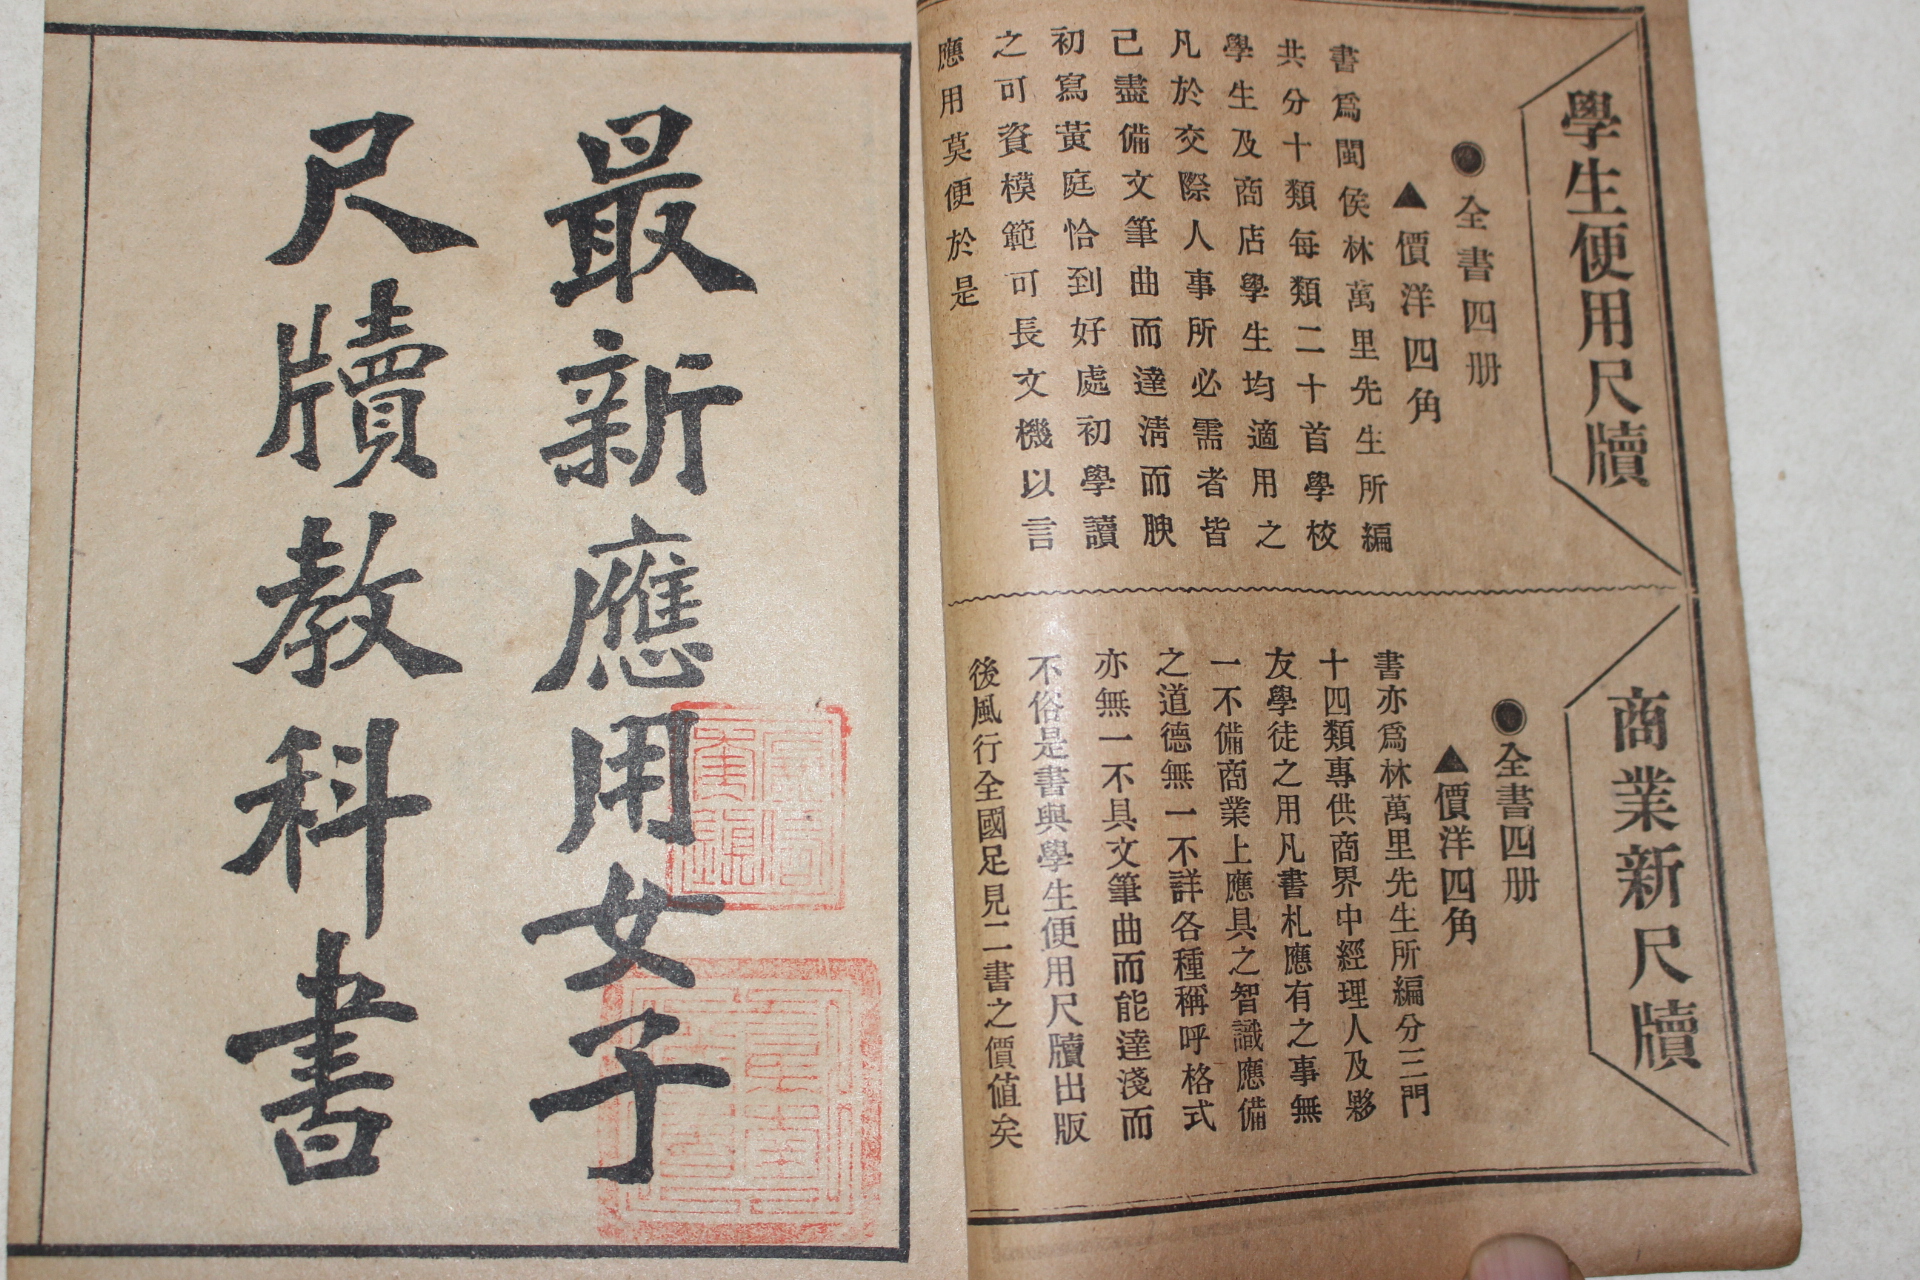 學生便用尺牘
●全書四册
▲價洋四角
書爲閩侯林萬里先生所編
共分十類每類二十首學校
學生及商店學生均適用之
凡於交際人事所必需者皆
已盡備文筆曲而達淸而腴
初寫黃庭恰到好處初學讀
之可資模範可長文機以言
應用莫便於是
商業新尺牘
●全書四册
▲價洋四角
書亦爲林萬里先生所編分三門
十四類專供商界中經理人及夥
友學徒之用凡書札應有之事無
一不備商業上應具之智識應備
之道德無一不詳各種稱呼格式
亦無一不具文筆曲而能達淺而
不俗是書與學生便用尺牘出版
後風行全國足見二書之價值矣
最新應用女子
尺牘教科書